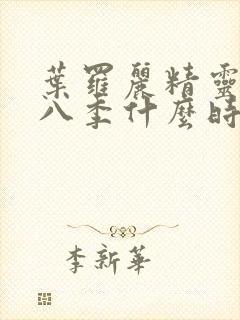 葉羅麗精靈
八季什麼時
李新華